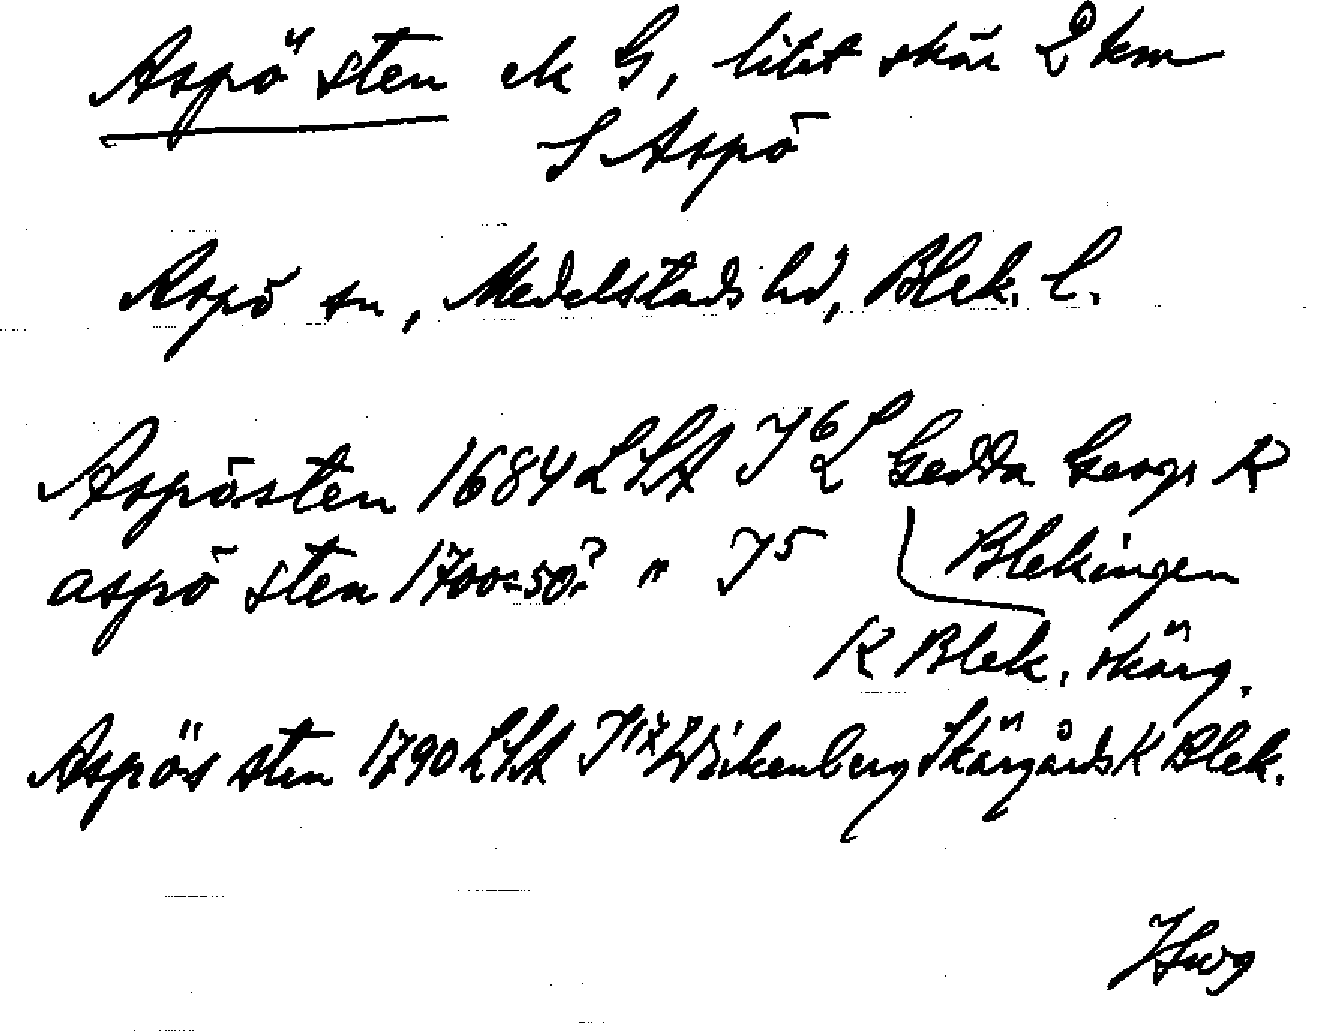 Aspö sten ek G, litet skär 2 km
S Aspö
Aspö sn, Medelstads hd, Blek. l.
Aspösten 1684 LLA J 6 L Gedda Geogr K
aspö sten 1700=50? " J5 Blekingen
K Blek. skärg.
Aspös sten 1790 LLA J17 Wickenberg Skärgårds K Blek.